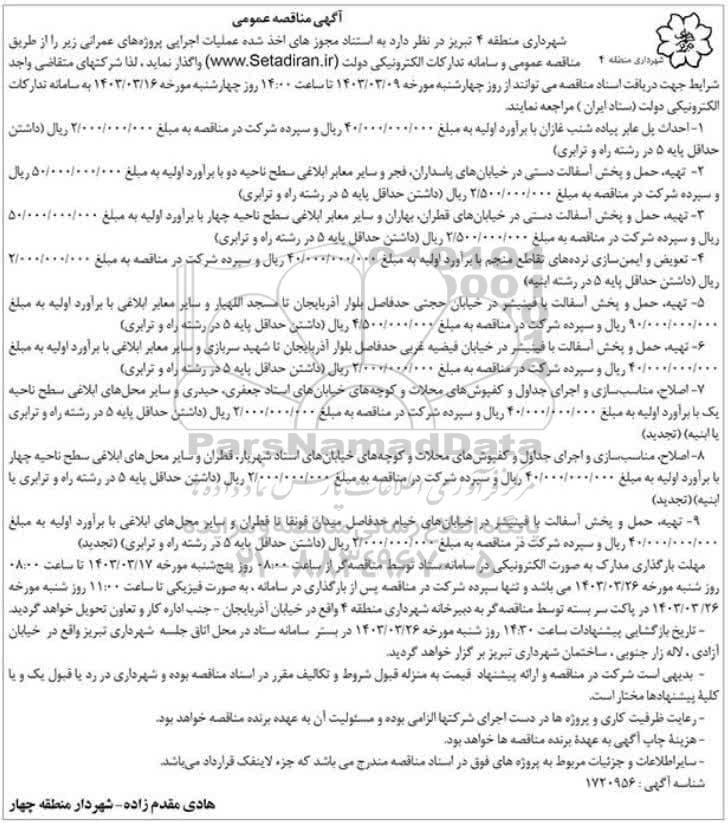 آگهی مناقصه عمومی
شهرداری منطقه ۴ تبریز در نظر دارد به استناد مجوز های اخذ شده عملیات اجرایی پروژه‌های عمرانی زیر را از طریق
شهرداری منطقه ۴
مناقصه عمومی و سامانه تدارکات الکترونیکی دولت (www.Setadiran.ir) واگذار نماید ، لذا شرکتهای متقاضی واجد
شرایط جهت دریافت اسناد مناقصه می توانند از روز چهارشنبه مورخه ۱۴۰۳/۰۳/۰۹ تا ساعت ۱۴:۰۰ روز چهارشنبه مورخه ۱۴۰۳/۰۳/۱۶ به سامانه تدارکات
الکترونیکی دولت (ستاد ایران ) مراجعه نمایند.
۱- احداث پل عابر پیاده شنب غازان با برآورد اولیه به مبلغ ۴۰/۰۰۰/۰۰۰/۰۰۰ ریال و سپرده شرکت در مناقصه به مبلغ ۲/۰۰۰/۰۰۰/۰۰۰ ریال (داشتن
حداقل پایه ۵ در رشته راه و ترابری)
۲- تهیه، حمل و پخش آسفالت دستی در خیابان‌های پاسداران، فجر و سایر معابر ابلاغی سطح ناحیه دو با برآورد اولیه به مبلغ ۵۰/۰۰۰/۰۰۰/۰۰۰ ریال
و سپرده شرکت در مناقصه به مبلغ ۲/۵۰۰/۰۰۰/۰۰۰ ریال (داشتن حداقل پایه ۵ در رشته راه و ترابری)
۳- تهیه، حمل و پخش آسفالت دستی در خیابان‌های قطران، بهاران و سایر معابر ابلاغی سطح ناحیه چهار با برآورد اولیه به مبلغ ۵۰/۰۰۰/۰۰۰/۰۰۰
ریال و سپرده شرکت در مناقصه به مبلغ ۲/۵۰۰/۰۰۰/۰۰۰ ریال (داشتن حداقل پایه ۵ در رشته راه و ترابری)
۴- تعویض و ایمن‌سازی نرده‌های تقاطع منجم با برآورد اولیه به مبلغ ۴۰/۰۰۰/۰۰۰/۰۰۰ ریال و سپرده شرکت در مناقصه به مبلغ ۲/۰۰۰/۰۰۰/۰۰۰
ریال (داشتن حداقل پایه ۵ در رشته ابنیه)
۵- تهیه، حمل و پخش آسفالت با فینیشر در خیابان حجتی حدفاصل بلوار آذربایجان تا مسجد اللهیار و سایر معابر ابلاغی با برآورد اولیه به مبلغ
۹۰/۰۰۰/۰۰۰/۰۰۰ ریال و سپرده شرکت در مناقصه به مبلغ ۴/۵۰۰/۰۰۰/۰۰۰ ریال (داشتن حداقل پایه ۵ در رشته راه و ترابری)
۶- تهیه، حمل و پخش آسفالت با فینیشر در خیابان فیضیه غربی حدفاصل بلوار آذربایجان تا شهید سربازی و سایر معابر ابلاغی با برآورد اولیه به مبلغ
۴۰/۰۰۰/۰۰۰/۰۰۰ ریال و سپرده شرکت در مناقصه به مبلغ ۲/۰۰۰/۰۰۰/۰۰۰ ریال (داشتن حداقل پایه ۵ در رشته راه و ترابری)
۷- اصلاح، مناسب‌سازی و اجرای جداول و کفپوش‌های محلات و کوچه‌های خیابان‌های استاد جعفری، حیدری و سایر محل‌های ابلاغی سطح ناحیه
یک با برآورد اولیه به مبلغ ۴۰/۰۰۰/۰۰۰/۰۰۰ ریال و سپرده شرکت در مناقصه به مبلغ ۲/۰۰۰/۰۰۰/۰۰۰ ریال (داشتن حداقل پایه ۵ در رشته راه و ترابری
یا ابنیه) (تجدید)
ParsNamadData
۸- اصلاح، مناسب‌سازی و اجرای جداول و کفپوش‌های محلات و کوچه‌های خیابان‌های استاد شهریار، قطران و سایر محل‌های ابلاغی سطح ناحیه چهار
با برآورد اولیه به مبلغ ۴۰/۰۰۰/۰۰۰/۰۰۰ ریال و سپرده شرکت در مناقصه به مبلغ ۲/۰۰۰/۰۰۰/۰۰۰ ریال (داشتن حداقل پایه ۵ در رشته راه و ترابری یا
ابنیه) (تجدید)
۹- تهیه، حمل و پخش آسفالت با فینیشر در خیابان‌های خیام حدفاصل میدان قونقا تا قطران و سایر محل‌های ابلاغی با برآورد اولیه به مبلغ
۴۰/۰۰۰/۰۰۰/۰۰۰ ریال و سپرده شرکت در مناقصه به مبلغ ۲/۰۰۰/۰۰۰/۰۰۰ ریال (داشتن حداقل پایه ۵ در رشته راه و ترابری) (تجدید)
۰۲۱-۸۸۳۴۹۶۷۰-۵
مهلت بارگذاری مدارک به صورت الکترونیکی در سامانه ستاد توسط مناقصه‌گر از ساعت ۰۸:۰۰ روز پنج‌شنبه مورخه ۱۴۰۳/۰۳/۱۷ تا ساعت ۰۸:۰۰
روز شنبه مورخه ۱۴۰۳/۰۳/۲۶ می باشد و تنها سپرده شرکت در مناقصه پس از بارگذاری در سامانه ، به صورت فیزیکی تا ساعت ۱۱:۰۰ روز شنبه مورخه
۱۴۰۳/۰۳/۲۶ در پاکت سر بسته توسط مناقصه‌گر به دبیرخانه شهرداری منطقه ۴ واقع در خیابان آذربایجان - جنب اداره کار و تعاون تحویل خواهد گردید.
- تاریخ بازگشایی پیشنهادات ساعت ۱۴:۳۰ روز شنبه مورخه ۱۴۰۳/۰۳/۲۶ در بستر سامانه ستاد در محل اتاق جلسه شهرداری تبریز واقع در خیابان
آزادی ، لاله زار جنوبی ، ساختمان شهرداری تبریز بر گزار خواهد گردید.
- بدیهی است شرکت در مناقصه و ارائه پیشنهاد قیمت به منزله قبول شروط و تکالیف مقرر در اسناد مناقصه بوده و شهرداری در رد یا قبول یک و یا
کلیهٔ پیشنهادها مختار است.
- رعایت ظرفیت کاری و پروژه ها در دست اجرای شرکتها الزامی بوده و مسئولیت آن به عهده برنده مناقصه خواهد بود.
- هزینهٔ چاپ آگهی به عهدهٔ برنده مناقصه ها خواهد بود.
- سایر اطلاعات و جزئیات مربوط به پروژه های فوق در اسناد مناقصه مندرج می باشد که جزء لاینفک قرارداد می‌باشد.
شناسه آگهی : ۱۷۲۰۹۵۶
هادی مقدم زاده - شهردار منطقه چهار